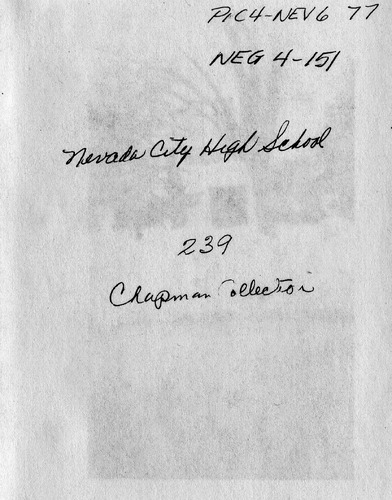 PIC4-NEV6 77
NEG 4-151
Nevada City High School
239
Chapman Collection